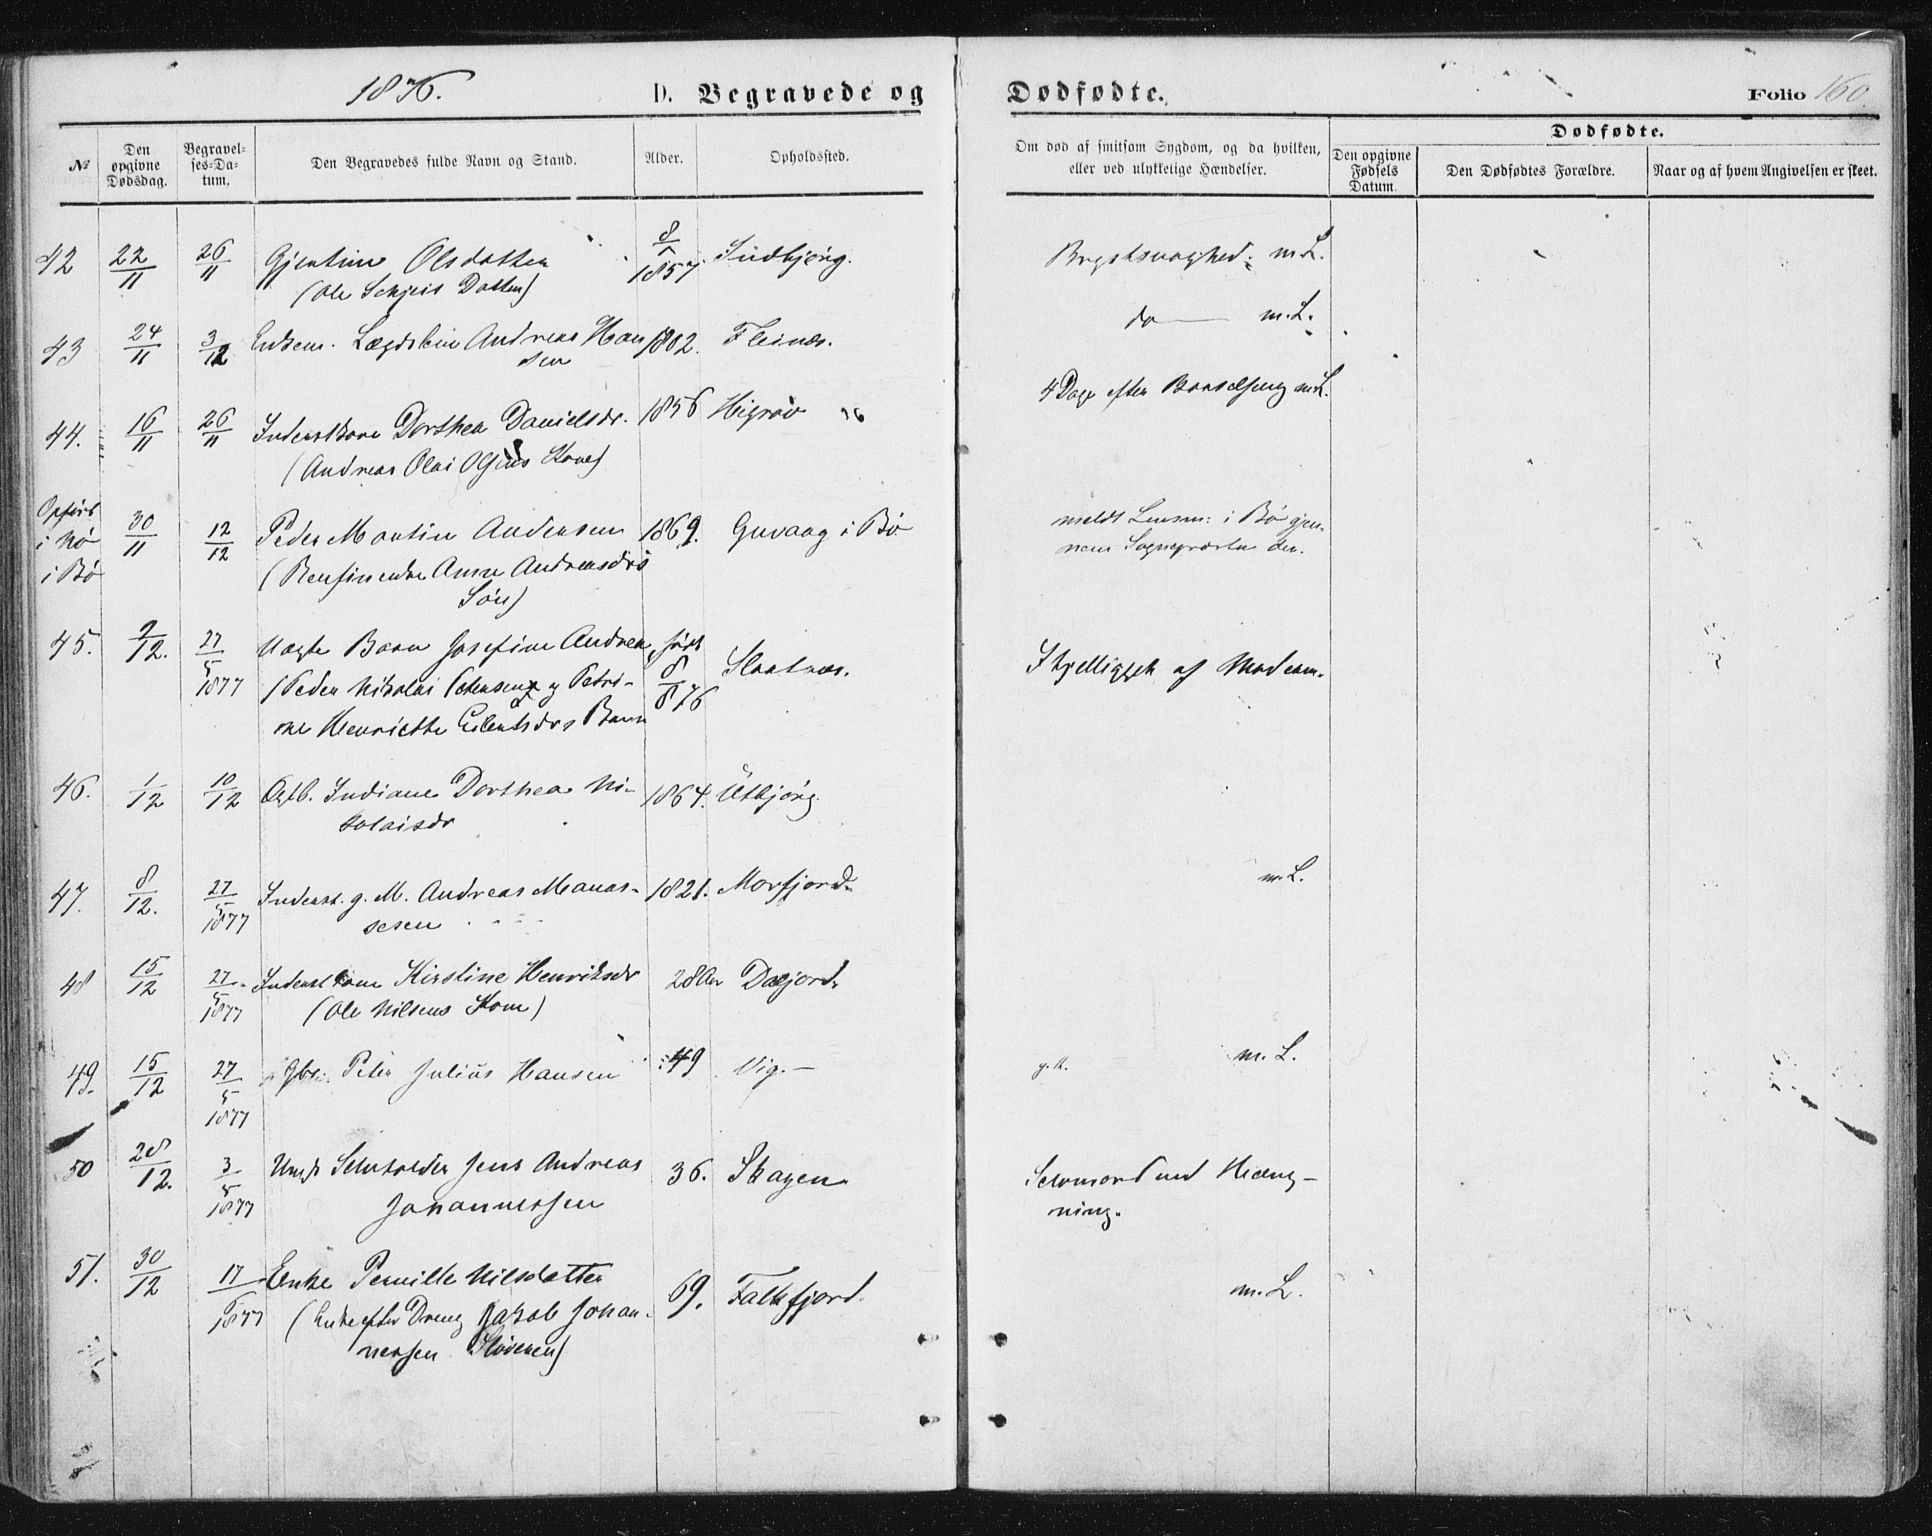 1876.
D. Begravede og Dødfødte.
Folio 160.
№
Den opgivne Dødsdag.
Begravelses-Datum.
Den Begravedes fulde Navn og Stand.
Alder.
Opholdssted.
Om død af smitsom Sygdom, og da hvilken,
eller ved ulykkelige Hændelser.
Dødfødte.
Den opgivne Fødsels Datum.
Den Dødfødtes Forældre.
Naar og af hvem Angivelsen er skeet.
42 22/11 26/11 Gjertine Olsdatter 1857. Indbjörg. Brystsvaghed. m.L.
(Ole Schjeis Datter)
43 24/11 3/12 Enkem. Lægdslem Andreas Han 1802. Fleinæs. do m.L.
sen
44. 16/11 26/11 Inderstkone Dorthea Danielsdr. 1856 4 Dage efter Barselseng m.L.
(Andreas Olai Kone)
Opført i No i Bö 30/11 12/12 Peder Martin Andersen 1869. Guvaag i Bö meldt Lensm: i Bö gjen-
nem Sognepræsten der.
(Anne Andreasdrs
Sön)
45. 2/12. 27/5 1877 Uægte Barn Josefine Andrea födt 8/8 76 Slaatnæs. Ihjelligget af Moderen.
(Peder Nikolai Petersens og Petri-
ne Henriette Eilertsdrs Barn
46. 1/12 10/12 Indiane Dorthea Ni- 1864. Utbjörg.
kolaisdr
47. 8/12. 27/5 1877 Inderst. g. M. Andreas Manas- 1821. Morfjord. m.L.
sesen
48 15/12 27/5 1877 Inderstkone Kirstine Henriksdr 28 Aar
(Ole Nilsens Kone)
49. 15/12 27/5 1877 Gbr. Peter Julius Hansen 49 Vig. m.L.
50 28/12. 3/5 1877 Ungk Selvholder Jens Andreas 36. Skagen Selvmord ved Hæng-
ning.
Johannessen
51. 30/12 17/6 1877 Enke Pernille Nilsdatter 69. Falkfjord. m.L.
(Enke efter Dreng Jakob Johan-
nessen